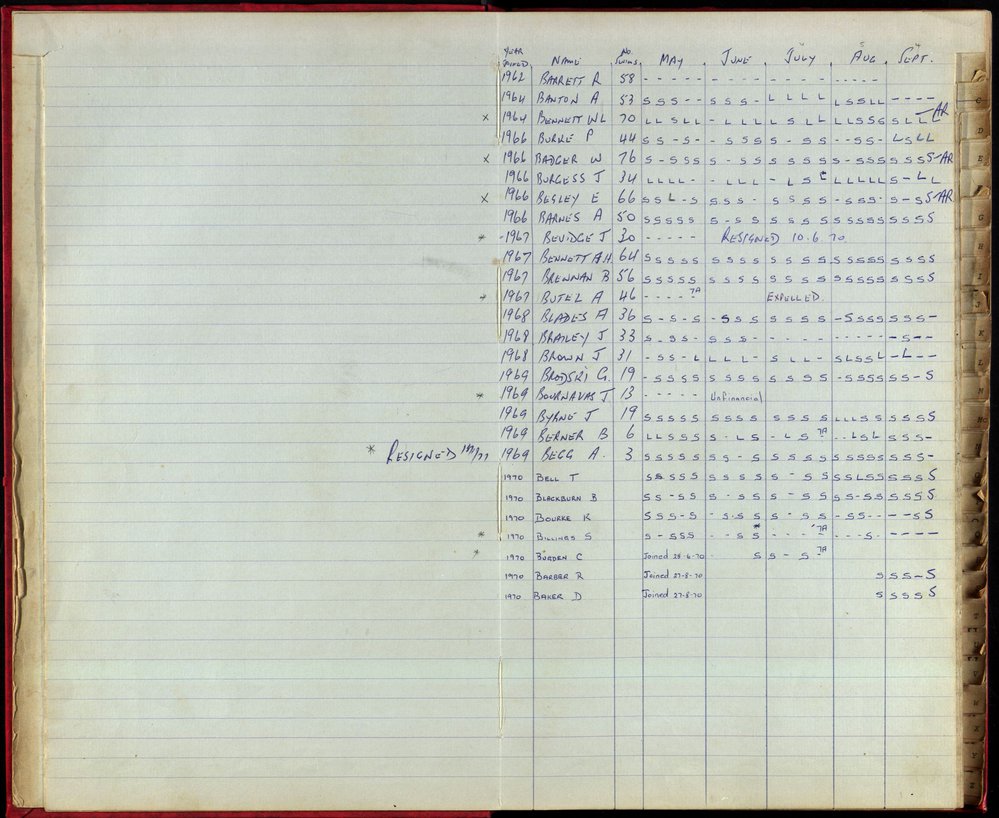 YEAR JOINED NAME NO. SWIMS MAY JUNE JULY AUG. SEPT.
1962 BARRETT R 58 - - - - - - - - - - - - - - - - - -
1964 BANTON A 53 S S S - - S S S - L L L L L S S L L - - - -
x 1964 BENNETT WL 70 L L S L L - L L L L S L L L L S S S L L L AR
1966 BURKE P 44 S S - S - - S S S S - S S - S S - - L S L L
x 1966 BADGER W 76 S - S S S S - S S S S S S S - S S S S S S S - AR
1966 BURGESS J 34 L L L L - - L L L - L S L L L L L L S - L L
x 1966 BESLEY E 66 S S L - S S S S - S S S S - S S S - S - S S - AR
1966 BARNES A 50 S S S S S S - S S S S S S S S S S S S S S S
* - 1967 BEVIDGE J 30 - - - - - RESIGNED 10.6.70
1967 BENNETT A.H. 64 S S S S S S S S S S S S S S S S S S S S S S
1967 BRENNAN B 56 S S S S S S S S S S S S S S S S S S S S S S
* 1967 BUTEL A 46 - - - - 7A EXPELLED.
1968 BLADES A 36 S - S - S - S S S S S S S - S S S S S S S -
1968 BRAILEY J 33 S - S S - S S S - - - - - - - - - - - S - -
1968 BROWN J 31 - S S - L L L L - S L L - S L S S L - L - -
1969 BRODSKI G. 19 - S S S S S S S S S S S S - S S S S S S - S
* 1969 BOURNAVAS J 13 - - - - - Unfinancial
1969 BYRNE J 19 S S S S S S S S S S S S S L L L S S S S S S
1969 BERNER B 6 L L S S S S - L S - L S 7A - - L S L S S S -
* RESIGNED 1969 BEGG A. 3 S S S S S S S - S S S S S S S S S S S S S S
1970 BELL T S S S S S S S S S S - S S S S L S S S S S S
1970 BLACKBURN B S S - S S S - S S S - S S S S - S S S S S S
1970 BOURKE K S S S - S - S S S S - S S - S S - - - - S S
* 1970 BILLINGS S S - S S S - - S S - - - 7A - - - S - - - - -
* 1970 BURDEN C Joined 28-6-70 * S S - S 7A
1970 BARBER R Joined 27-8-70 S S S - S
1970 BAKER D Joined 27-8-70 S S S S S